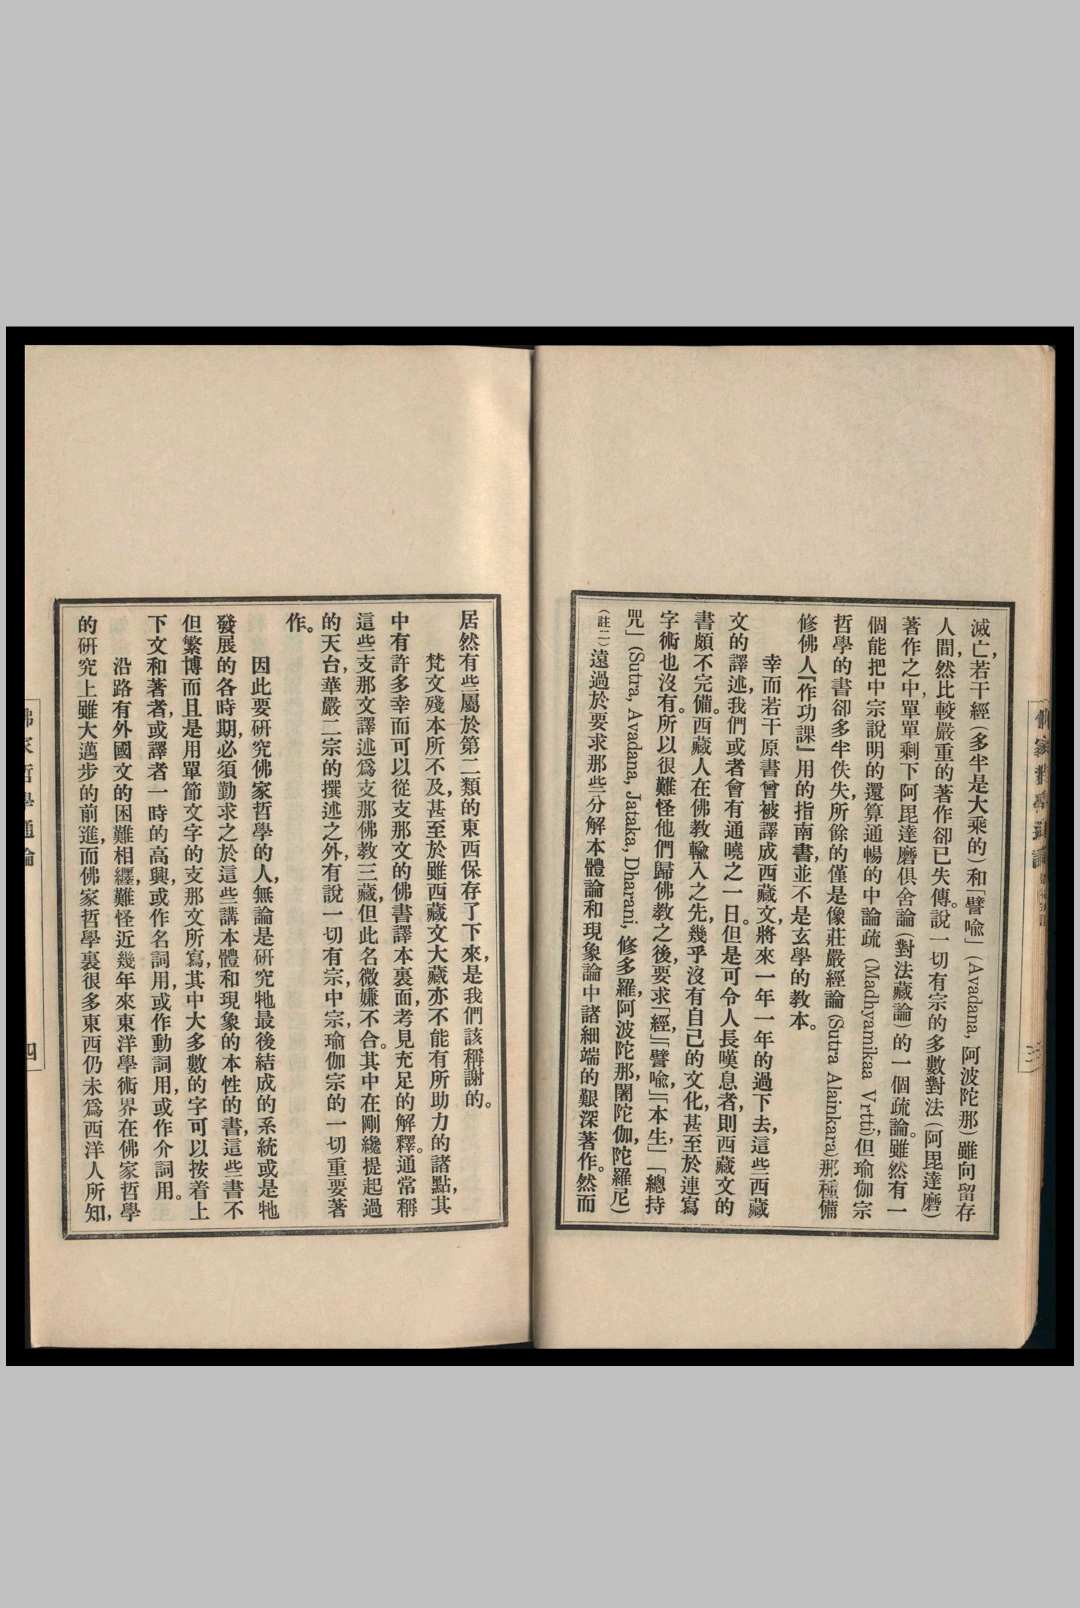 滅亡,若干經(多半是大乘的)和「譬喩」(Avadana, 阿波陀那)雖向留存
人間,然比較嚴重的著作卻已失傳。說一切有宗的多數對法(阿毘達磨)
著作之中,單單剩下阿毘達磨俱舍論(對法藏論)的一個疏論。雖然有一
個能把中宗說明的還算通暢的中論疏(Madhyamikaa Vrtti),但瑜伽宗
哲學的書卻多半佚失,所餘的僅是像莊嚴經論(Sutra Alainkara)那種備
修佛人『作功課』用的指南書,並不是玄學的教本。
幸而若干原書曾被譯成西藏文,將來一年一年的過下去,這些西藏
文的譯述,我們或者會有通曉之一日。但是可令人長嘆息者,則西藏文的
書頗不完備。西藏人在佛教輸入之先,幾乎沒有自己的文化,甚至於連寫
字術也沒有。所以很難怪他們歸佛教之後,要求「經」,「譬喩」,「本生」「總持
咒」(Sutra, Avadana, Jataka, Dharani, 修多羅,阿波陀那,闍陀伽,陀羅尼)
(註二)遠過於要求那些分解本體論和現象論中諸細端的艱深著作。然而
佛家哲學通論
三
居然有些屬於第二類的東西保存了下來,是我們該稱謝的。
梵文殘本所不及,甚至於雖西藏文大藏亦不能有所助力的諸點,其
中有許多幸而可以從支那文的佛書譯本裏面,考見充足的解釋。通常稱
這些支那文譯述爲支那佛教三藏,但此名微嫌不合。其中在剛纔提起過
的天台,華嚴二宗的撰述之外,有說一切有宗,中宗,瑜伽宗的一切重要著
作。
因此要硏究佛家哲學的人,無論是硏究牠最後結成的系統或是牠
發展的各時期,必須勤求之於這些講本體和現象的本性的書,這些書不
但繁博而且是用單節文字的支那文所寫,其中大多數的字可以按着上
下文和著者,或譯者一時的高興,或作名詞用,或作動詞用,或作介詞用。
沿路有外國文的困難相纏,難怪近幾年來東洋學術界在佛家哲學
的硏究上雖大邁步的前進,而佛家哲學裏很多東西仍未爲西洋人所知,
佛家哲學通論
四